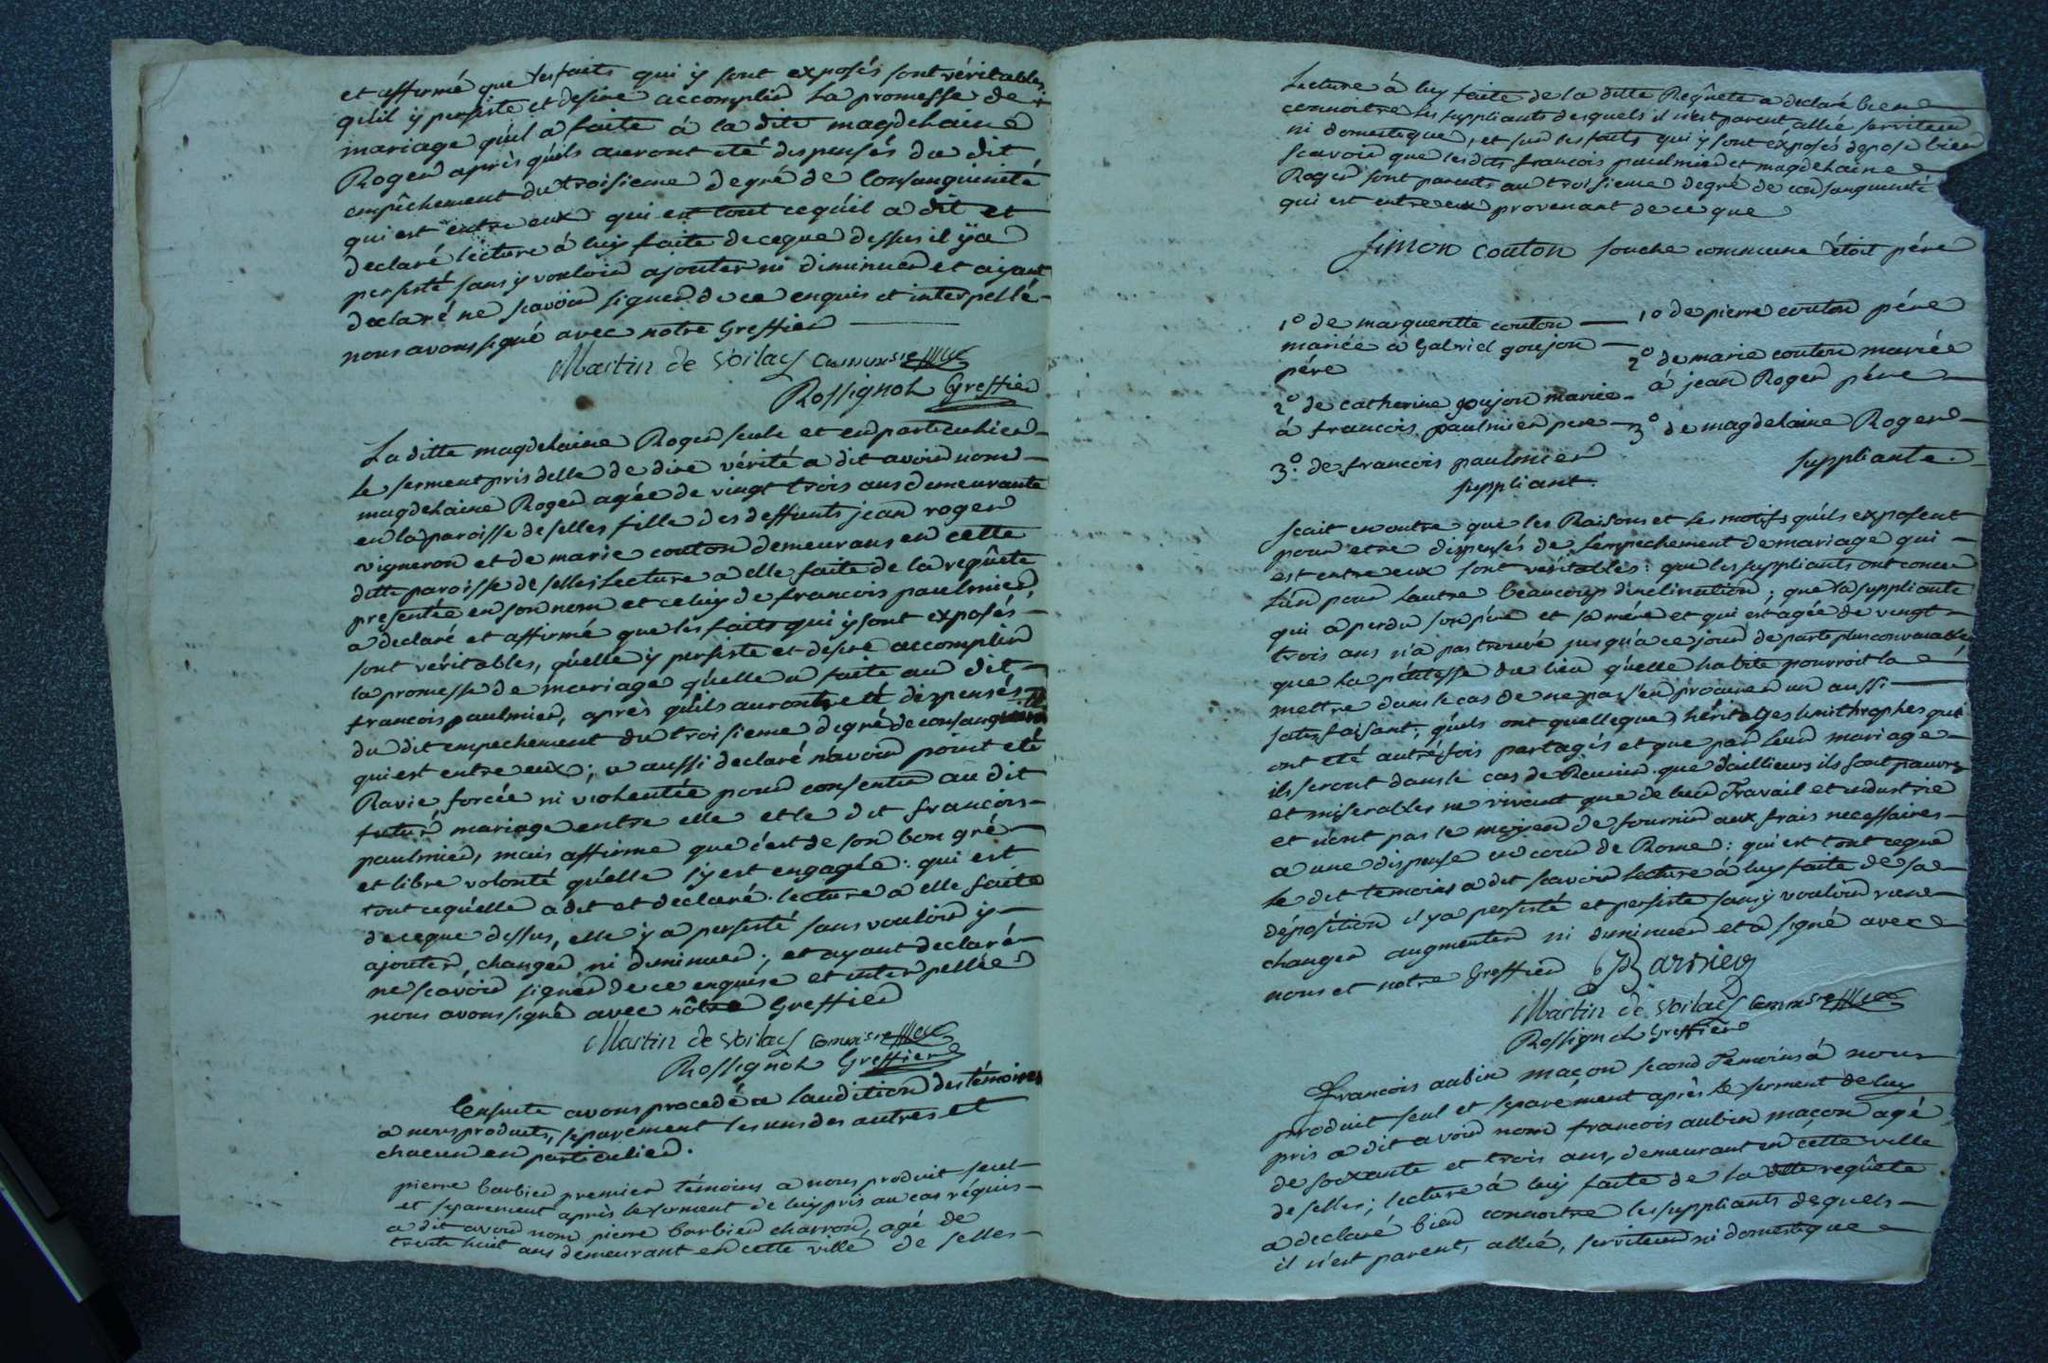 et affirmé que les faits qui y sont exposés sont véritables
qu'il y persiste et desire accomplir la promesse de
mariage qu'il a faite à la dite magdelaine
Roger après qu'ils auront eté dispensés du dit
empêchement du troisieme degré de consanguinité
qui est entre eux qui est tout ce qu'il a dit et
declaré lecture à luy faite de ce que dessus il y a
persisté sans y vouloir ajouter ni diminuer et ayant
declaré ne scavoir signer de ce enquis et interpellé
nous avons signé avec notre Greffier
Martin de Voilacy
Rossignol Greffier
La ditte magdelaine Roger seule et en particulier
le serment pris d'elle de dire vérité a dit avoir nom
magdelaine Roger agée de vingt trois ans demeurante
en la paroisse de selles fille des deffunts jean roger
vigneron et de marie couton demeurans en cette
ditte paroisse de selles, Lecture a elle faite de la requête
presentée en son nom et celuy de francois paulmier,
a declaré et affirmé que les faits qui y sont exposés
sont véritables, qu'elle y persiste et desire accomplir
la promesse de mariage qu'elle a faite au dit
francois paulmier, après qu'ils auront eté dispensés
du dit empechement du troisieme degré de consanguinité
qui est entre eux; a aussi declaré n'avoir point eté
Ravie forcée ni violentée pour consentir au dit
futur mariage entre elle et le dit francois
paulmier, mais affirme que c'est de son bon gré
et libre volonté qu'elle s'y est engagée: qui est
tout ce qu'elle a dit et declaré. lecture a elle faite
de ce que dessus, elle y a persisté sans vouloir y
ajouter, changer, ni diminuer; et ayant declaré
ne scavoir signer de ce enquise et interpellée
nous avons signé avec nôtre Greffier
Martin de Voilacy
Rossignol Greffier
Ensuite avons procedé a l'audition des témoins
a nous produits, separement les uns des autres et
chacun en particulier.
pierre barbier premier témoins a nous produit seul
et separement après le serment de luy pris au cas réquis
a dit avoir nom pierre barbier charron, agé de
trente huit ans demeurant en cette ville de selles
Lecture à luy faite de la ditte Requête a declaré bien
connoitre les suppliants desquels il n'est parent allié serviteur
ni domestique, et sur les faits qui y sont exposés depose bien
scavoir que lesdits francois paulmier et magdelaine
Roger sont parents au troisieme degré de consanguinité
qui est entre eux provenant de ce que
Simon couton souche commune étoit pére
1º de margueritte couton
mariée à Gabriel goujon
pére
2º de catherine goujon mariée
à francois paulmier pere
3º de francois paulmier
suppliant.
1º de pierre couton pére
2º de marie couton mariée
à jean Roger pére
3º de magdelaine Roger
suppliante.
scait en outre que les Raisons et les motifs qu'ils exposent
pour etre dispensés de l'empechement de mariage qui
est entre eux sont véritables: que les suppliants ont concu
l'un pour l'autre beaucoup d'inclination; que la suppliante
qui a perdu son pére et sa mére et qui est agée de vingt
trois ans n'a pas trouvé jusqu'a ce jour de partis plus convenables
que la pétitesse du lieu qu'elle habite pourroit la
mettre dans le cas de ne pas s'en procurer un aussi
satisfaisant; qu'ils ont quelleques héritages limithrophes qui
ont eté autréfois partagés et que par leur mariage
ils seront dans le cas de Reunir. que d'aillieurs ils sont pauvres
et misérables ne vivent que de leur Travail et industrie
et n'ont pas le moyen de fournir aux frais necessaires
a une dispense en cour de Rome: qui est tout ce que
le dit témoins a dit scavoir lecture à luy faite de sa
déposition il y a persisté et persiste sans y vouloir rien
changer augmenter ni diminuer et a signé avec
nous et notre Greffier Barbier
Martin de Voilacy
Rossignol Greffier
François aubin maçon second Temoins à nous
produit seul et separément après le serment de luy
pris a dit avoir nom francois aubin maçon agé
de soixante et trois ans, demeurant en cette ville
de selles; lecture à luy faite de la ditte requête
a declaré bien connoitre les suppliants desquels
il n'est parent, allié, serviteur ni domestique